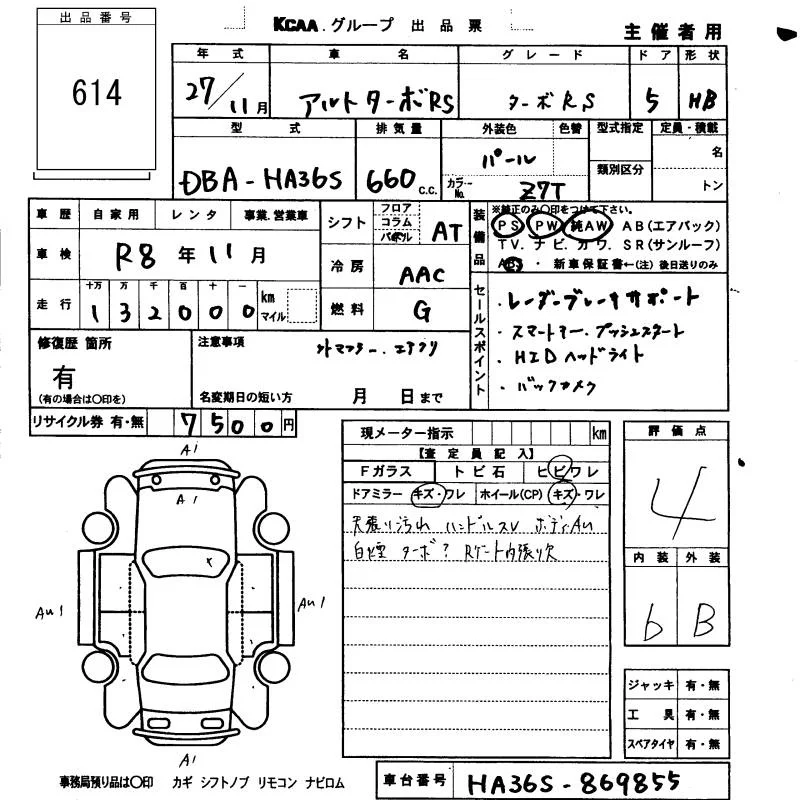 出品番号
614
KCAA.グループ 出品票
主催者用
年式 車名 グレード ドア 形状
27/11月 アルトターボRS ターボRS 5 HB
型式 排気量 外装色 色替 型式指定 定員・積載
DBA-HA36S 660 c.c. パール
カラーNo. Z7T
類別区分
名
トン
車歴 自家用 レンタ 事業.営業車
車検 R8年11月
走行 十万 万 千 百 十 一
132000 km マイル
シフト フロア コラム AT
冷房 AAC
燃料 G
装備品
※純正のみ○印をつけて下さい。
PS PW 純AW AB(エアバッグ)
TV. ナビ. カワ. SR(サンルーフ)
・ 新車保証書←(注) 後日送りのみ
セールスポイント
・レーダーブレーキサポート
・スマートキー.プッシュスタート
・HIDヘッドライト
・バックカメラ
修復歴 箇所
有
(有の場合は○印を)
注意事項
名変期日の短い方 月 日まで
リサイクル券 有・無 7500円
現メーター指示 km
【査定員記入】
Fガラス トビ石 ヒビワレ
ドアミラー キズ・ワレ ホイール(CP) キズ・ワレ
天張り汚れ ハンドルスレ ボディAU
ターボ? Rゲート内張り欠
評価点
4
内装 外装
6 B
A1
A1
AU1
AU1
A1
ジャッキ 有・無
工具 有・無
スペアタイヤ 有・無
事務局預り品は○印 カギ シフトノブ リモコン ナビロム
車台番号 HA36S-869855